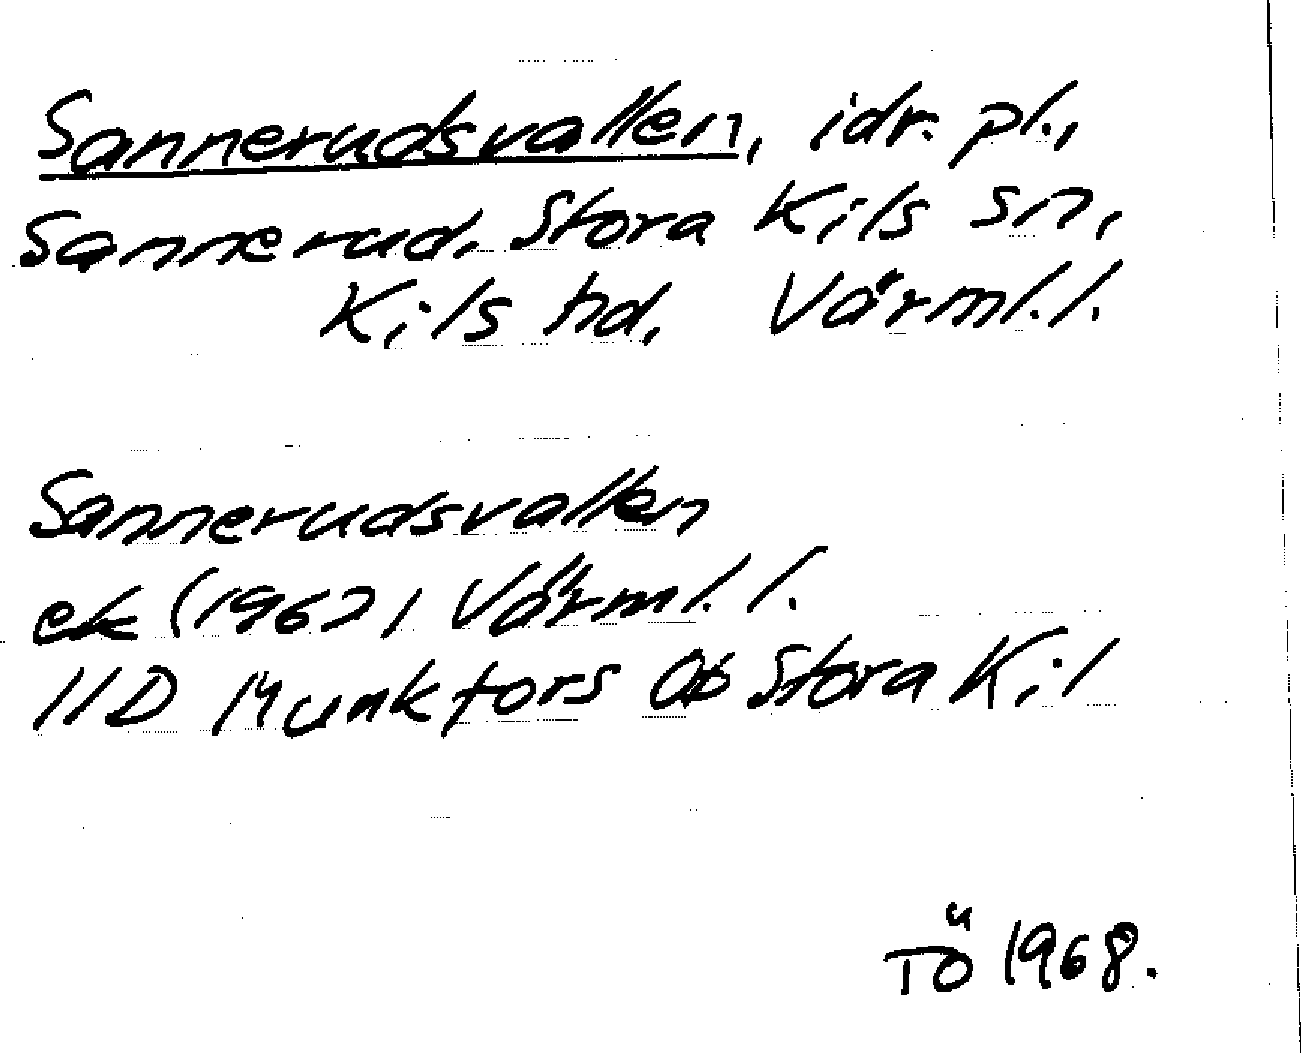 Sannerudsvallen, idr. pl.,
Sannerud, Stora Kils sn,
Kils hd, Värml. l.
Sannerudsvallen
ek (1967) Värml. l.
11D Munkfors 0b Stora Kil
TÖ 1968.